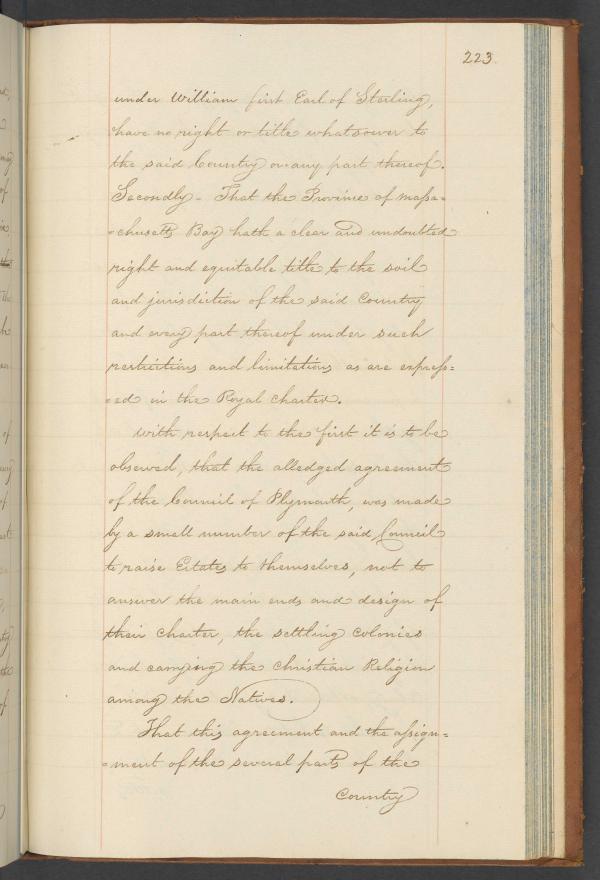 223
under William first Earl of Sterling,
have no right or title whatsoever to
the said Country or any part thereof.
Secondly - That the Province of Massa=
=chusetts Bay hath a clear and undoubted
right and equitable title to the soil
and jurisdiction of the said Country
and every part thereof under such
restrictions and limitations as are express=
=ed in the Royal charter.
With respect to the first it is to be
observed, that the alledged agreement
of the Council of Plymouth, was made
by a small number of the said Council
to raise Estates to themselves, not to
answer the main ends and design of
their charter, the settling colonies
and carrying the Christian Religion
among the Natives.
That this agreement and the assign=
=ment of the several parts of the
Country